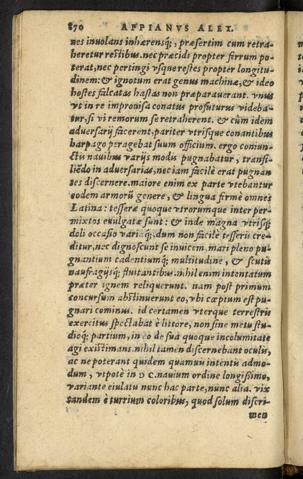 870 APPIANVS ALEX.
nes inuolans inhærensq́; præsertim cum retra-
heretur restibus. nec præcidi propter firrum po-
terat, nec pertingi vsque restes propter longitu-
dinem: & ignotum erat genus machinæ, & ideo
hostes falcatas hastas non præparauerant. vnus
vt in re improuisa conatus profuturus videba-
tur, si vi remorum se retraherent. & cùm idem
aduersarij facerent, pariter vtrisque conantibus
harpago peragebat suum officium. ergo coniun-
ctis nauibus varijs modis pugnabatur, transi-
liēdo in aduersarias, nec iam facilè erat pugnan
tes discernere. maiore enim ex parte vtebantur
eodem armorū genere, & lingua firmè omnes
Latina: tesseræ quoque vtrorumque inter per-
mixtos euulgatæ sunt: & inde magna vtrisq́;
doli occasio variaq́;. dum non facilè tesseris cre-
ditur, nec dignoscunt se inuicem. mari pleno pu-
gnantium cadentiumq́; multitudine, & scutis
naufragijsq́; fluitantibus. nihil enim intentatum
præter ignem reliquerunt. nam post primum
concursum abstinuerunt eo, vbi cœptum est pu-
gnari cominus. id certamen vterque terrestris
exercitus spectabat è littore, non sine metu stu-
dioq́; partium, in eo de sua quoque incolumitate
agi existimans. nihil tamen discernebant oculis,
ac ne poterant quidem quamuis intentū admo-
dum, vtpotè in DC. nauium ordine longissimo,
variante eiulatu nunc hac parte, nunc alia. vix
tandem è turrium coloribus, quod solum discri-
men